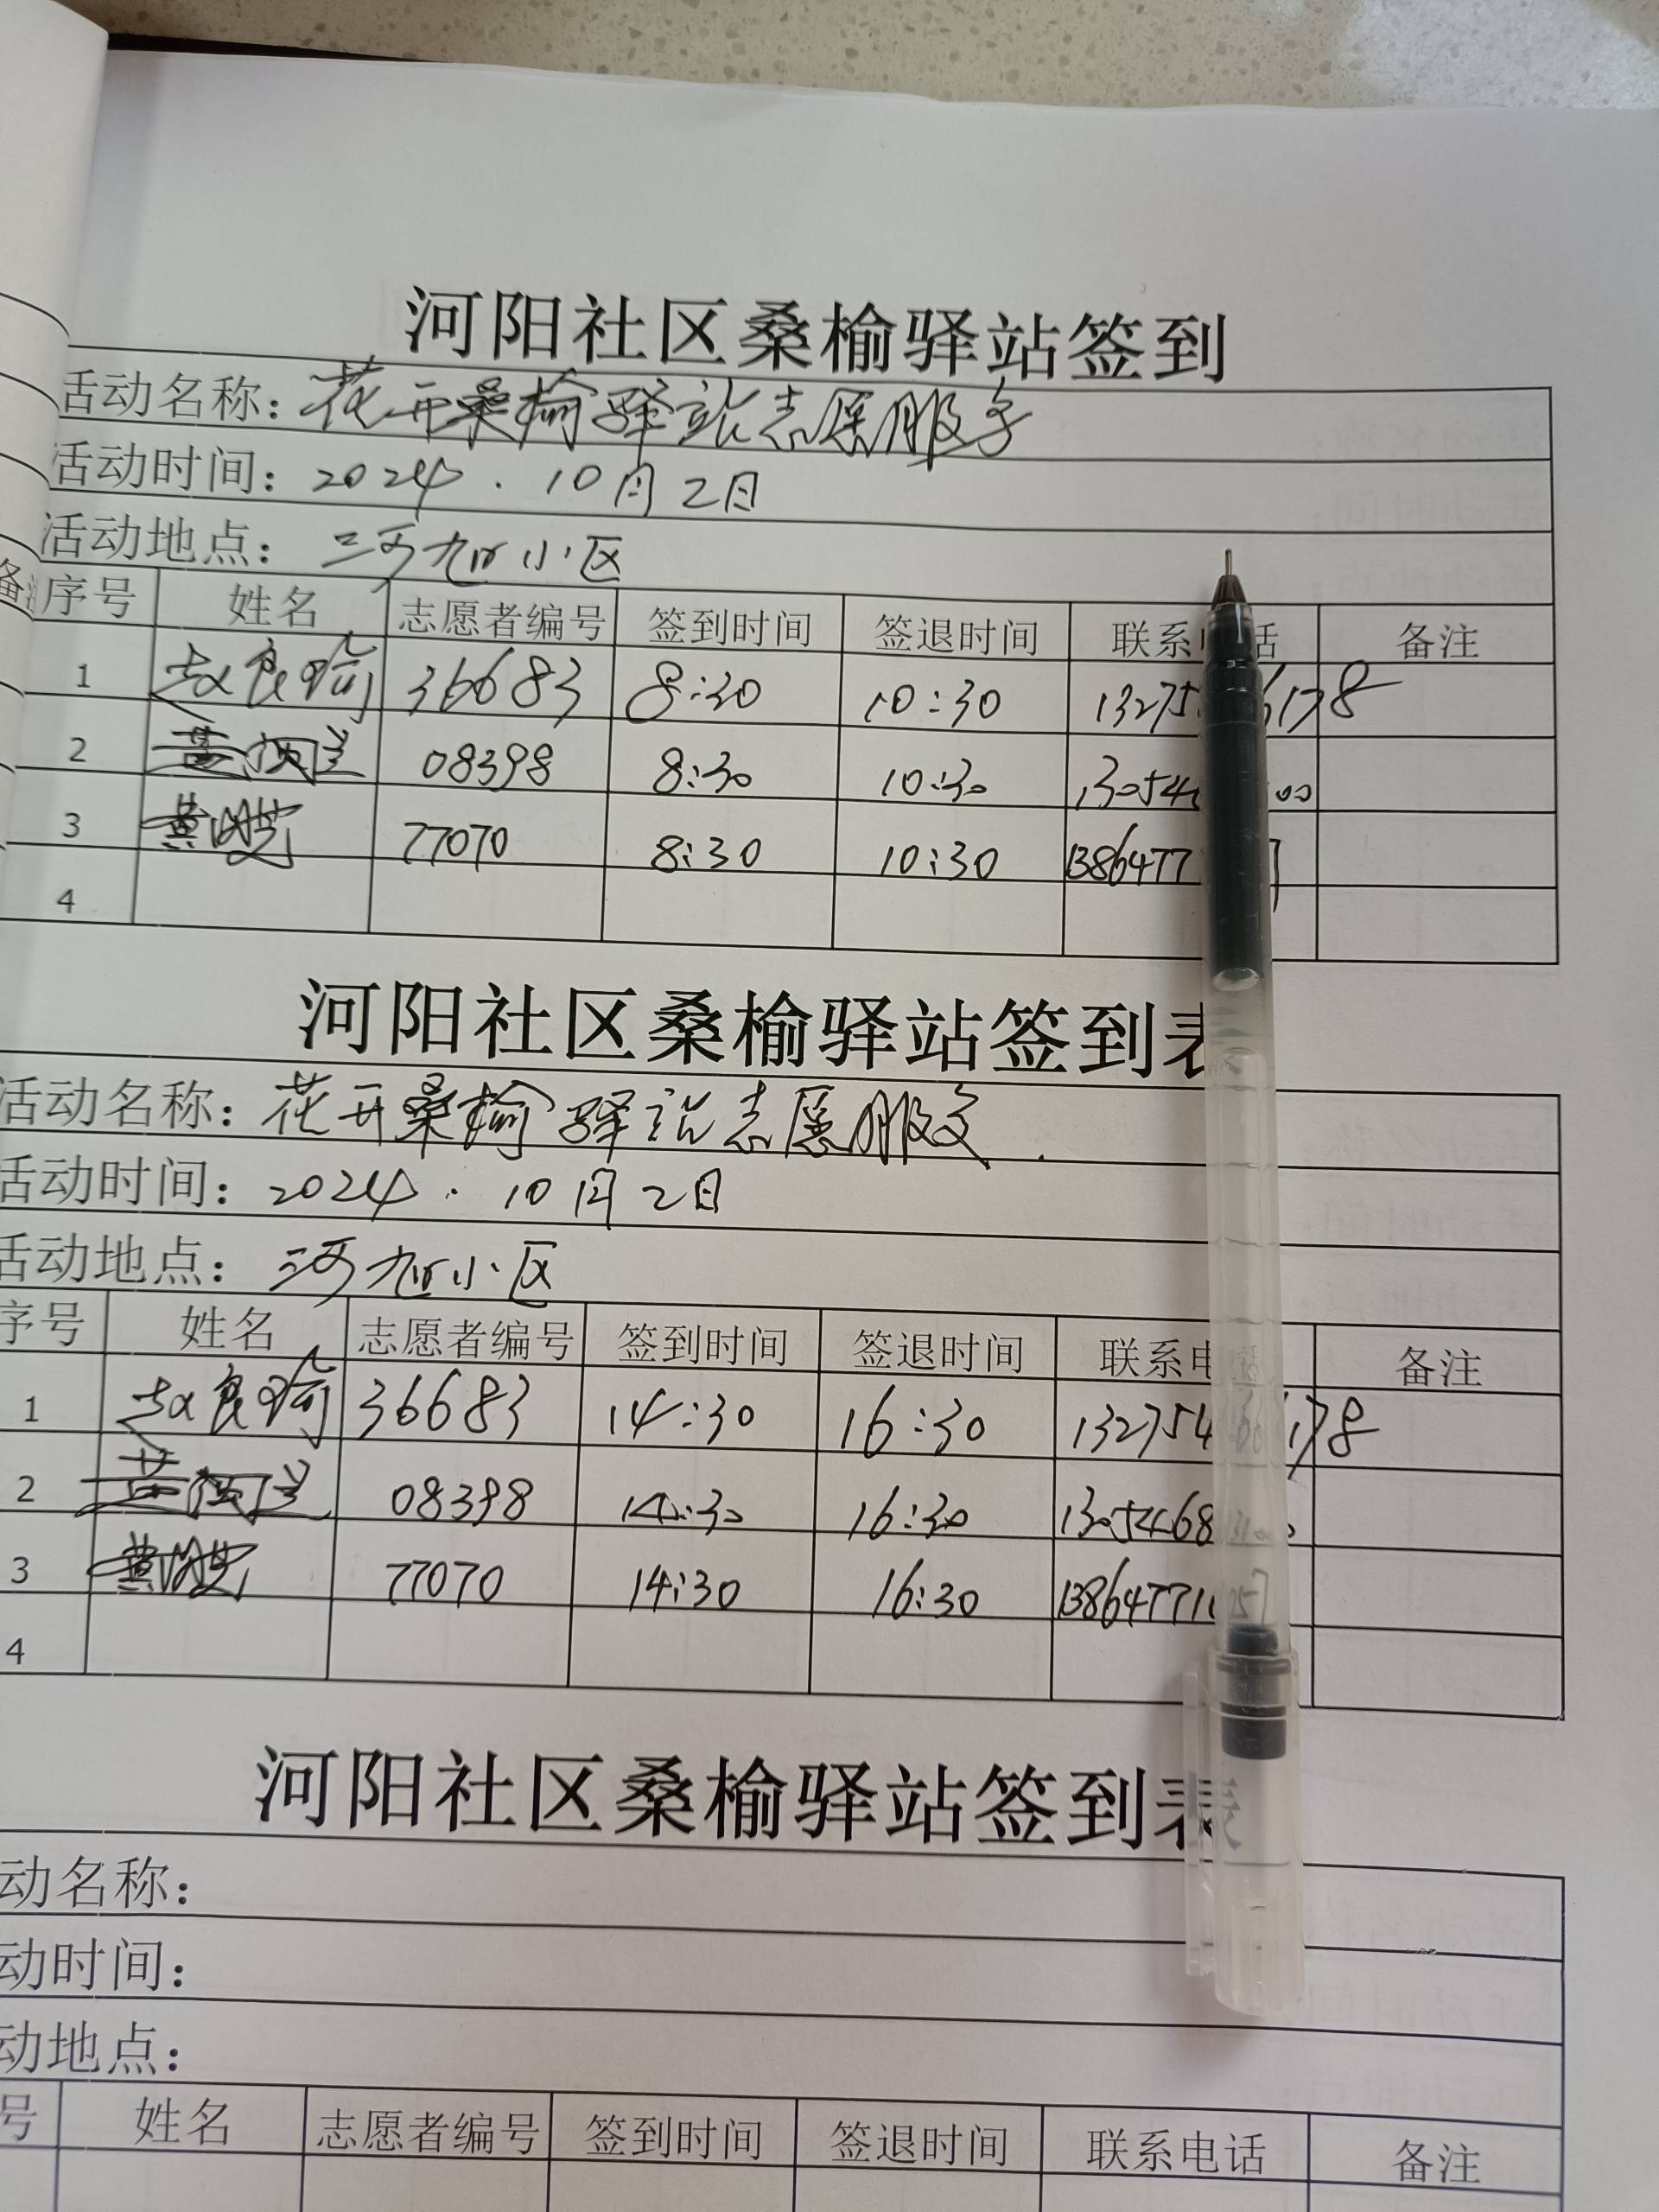 河阳社区桑榆驿站签到
活动名称：花开桑榆驿站志愿服务
活动时间：2024.10月2日
活动地点：三河九町小区
备 序号 姓名 志愿者编号 签到时间 签退时间 联系 话 备注
1 赵良瑜 36683 8:30 10:30 13275 6178
2 08398 8:30 10:30 13054 00
3 黄 77070 8:30 10:30 1386477
4
河阳社区桑榆驿站签到表
活动名称：花开桑榆驿站志愿服务.
活动时间：2024.10月2日
活动地点：三河九町小区
序号 姓名 志愿者编号 签到时间 签退时间 联系电 备注
1 赵良瑜 36683 14:30 16:30 132754 178
2 08398 14:30 16:30 1305468
3 黄 77070 14:30 16:30 13864771
4
河阳社区桑榆驿站签到表
动名称：
动时间：
动地点：
号 姓名 志愿者编号 签到时间 签退时间 联系电话 备注